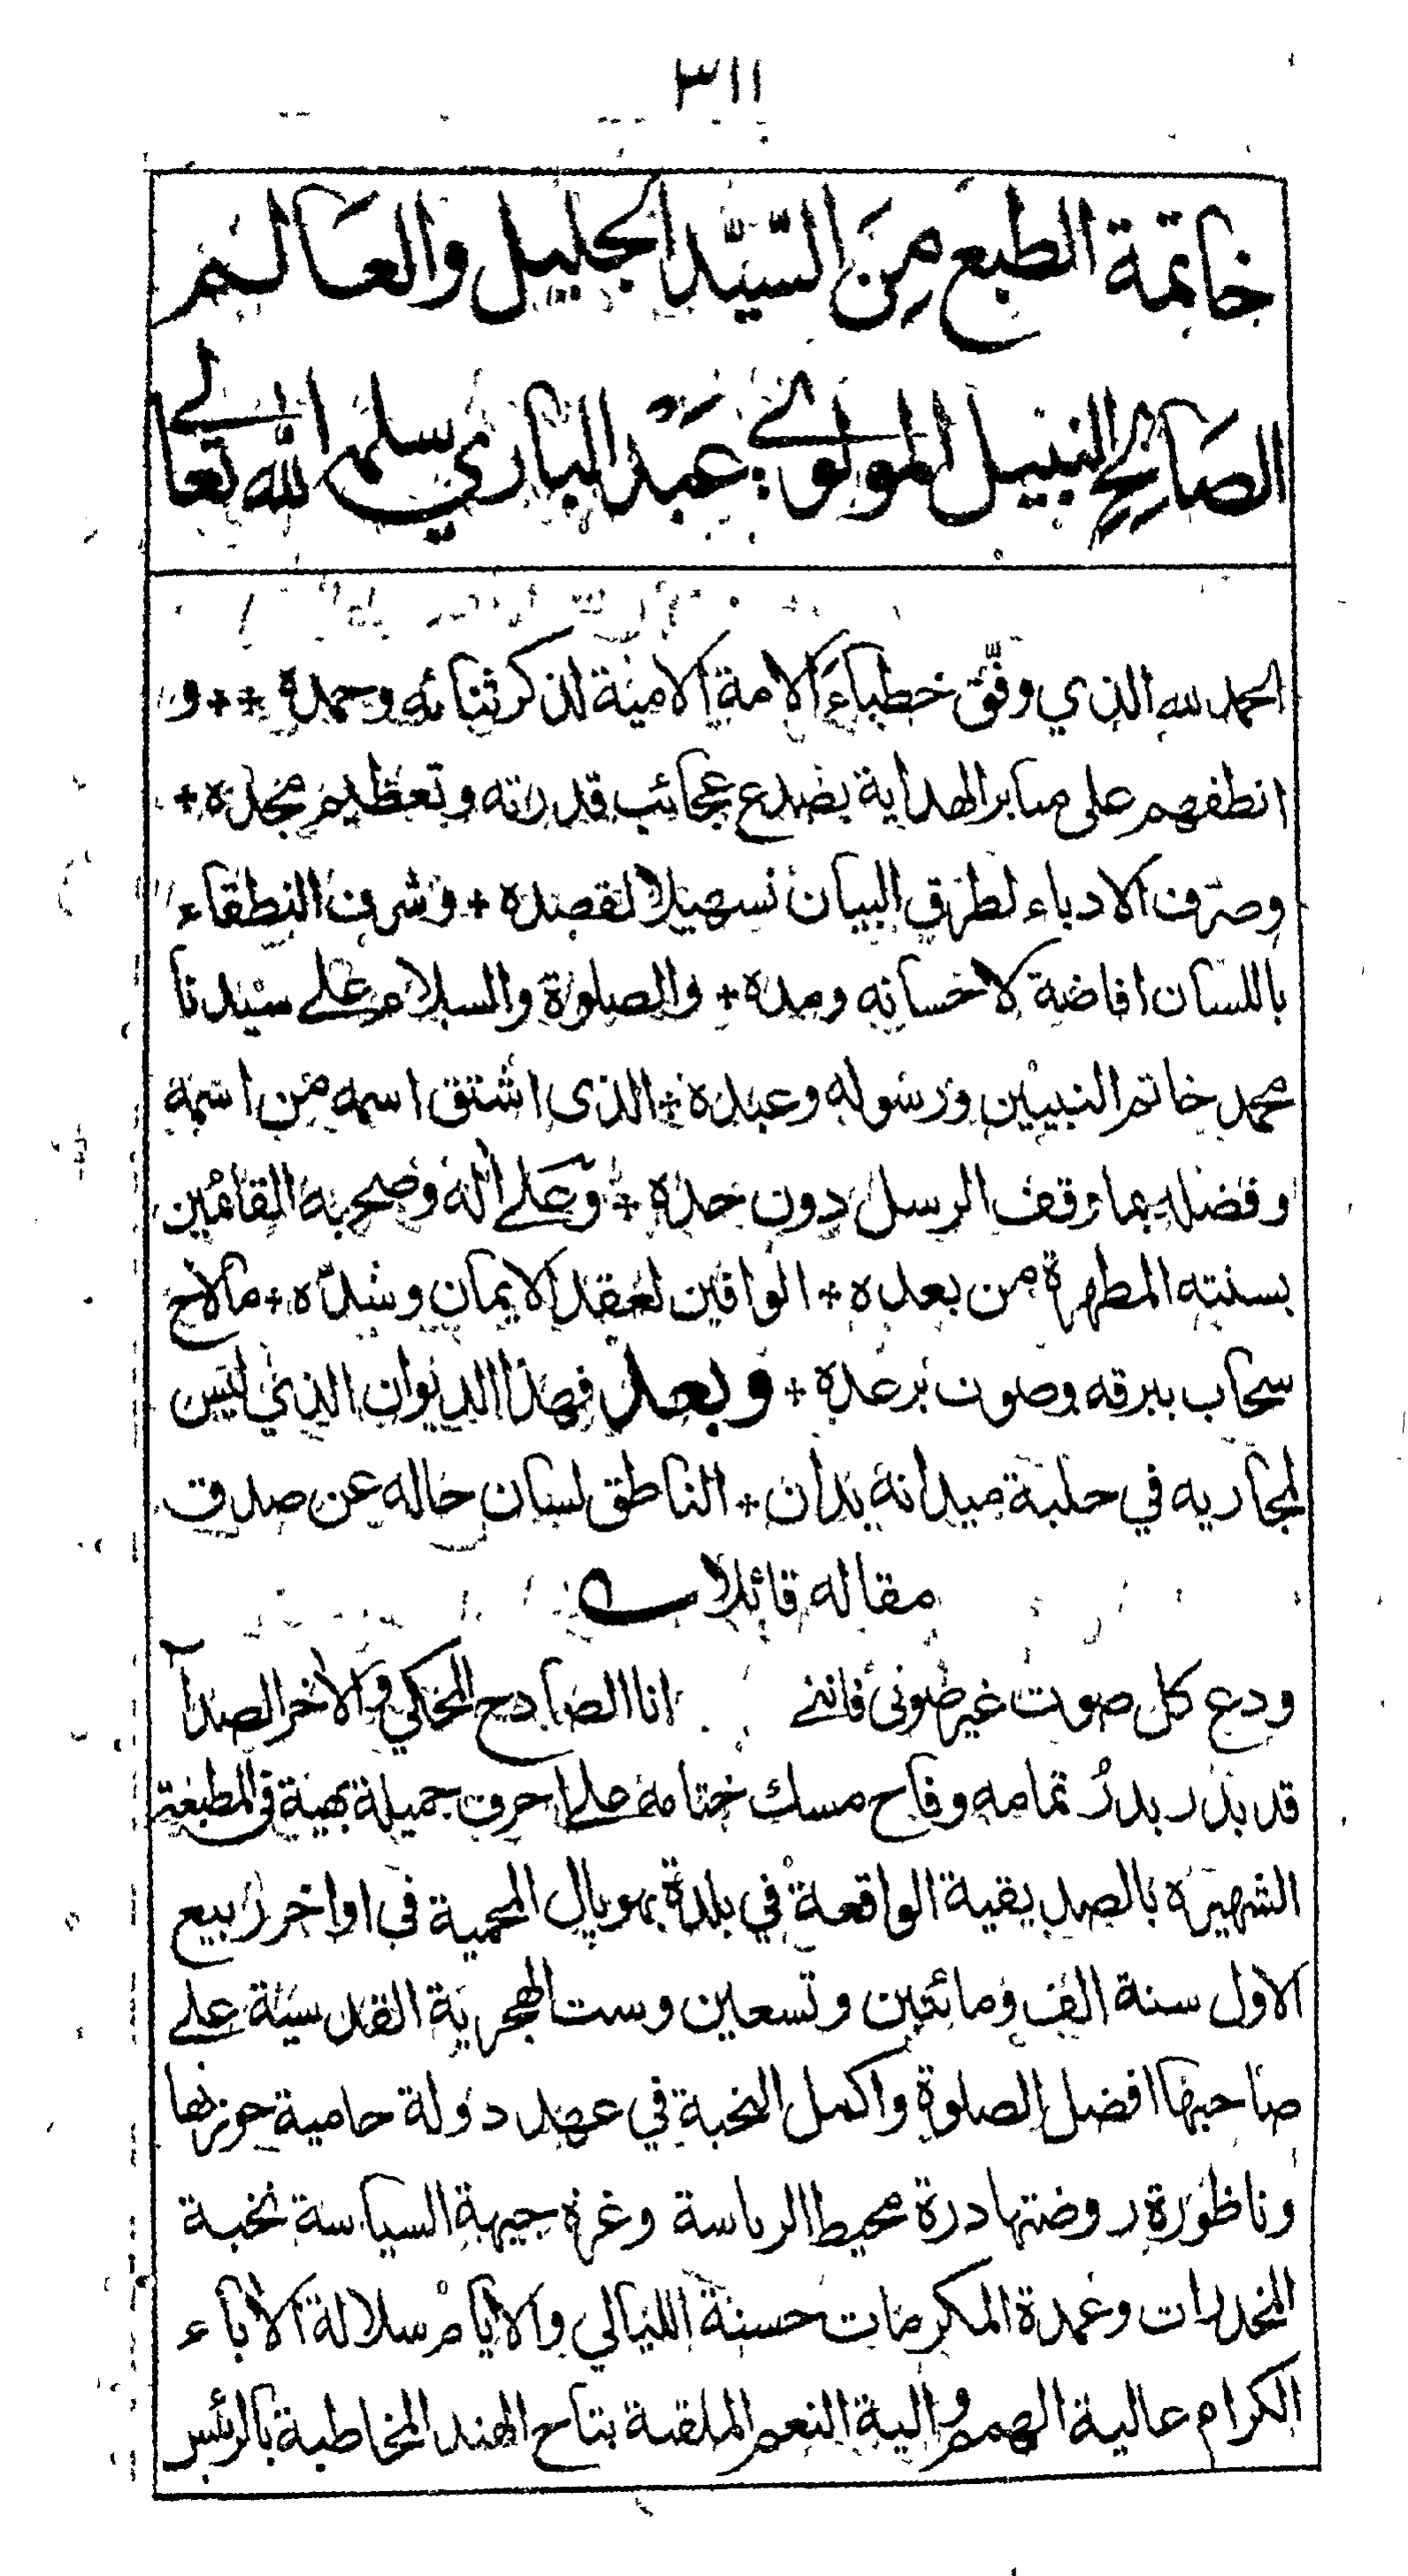 ٣١١
خاتمة الطبع مِنَ السَّيِّد الجليل والعَالم
الصَالحِ النبيل المولوي عَبْد الباري سلمه الله تعالى
الحمد لله الذي وفّق خطباءَ الامة الامنية لذكر ثنائه وحمده ++ و
انطقهم على منابر الهداية بصدع عجائب قدرته وتعظيم مجده +
وصرّف الادباء لطرق البيان تسهيلا لقصده + وشرف النطقاء
باللسان افاضة لاحسانه ومده + والصلوة والسلام على سيدنا
محمد خاتم النبيين ورسوله وعبده + الذى اشتق اسمه من اسمه
وفضله بما وقف الرسل دون حده + وعلى أله وصحبه القائمين
بسنته المطهرة من بعده + الوافين لعقد الايمان وشدّه + مالاح
سحاب ببرقه وصوت برعده + وبعد فهذا الديوان الذي ليس
لمجاريه في حلبة ميدانه يدان + الناطق لسان حاله عن صدق
مقاله قائلا
ودع كل صوت غير صوتى فاننى انا الصادح المحكي والأخر الصدآ
قد بدر بدرُ تمامه وفاح مسك ختامه على احرف جميلة بهية فى المطبعة
الشهيره بالصديقية الواقعة في بلدة بهوپال المحمية فى اواخر ربيع
الاول سنة الف ومائتين وتسعين وست الهجرية القدسية على
صاحبها افضل الصلوة واكمل التحية في عهد دولة حامية حوزتها
وناظورة روضتها درة محيط الرياسة وغرة جبهة السياسة نخبة
المخدرات وعمدة المكرمات حسنة الليالي والايام سلالة الأباء
الكرام عالية الهمم والية النعم الملقبة بتاج الهند المخاطبة بالرئيس